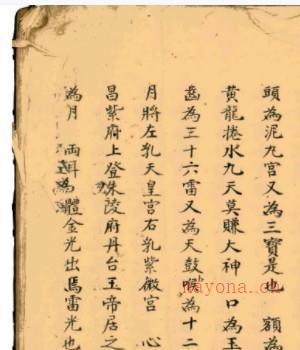 頭為泥九宮又為三寶是也 額為
黃龍捲水九天莫賭大神 口為玉
齒為三十六雷又為天鼓 喉為十二
月將左乳天皇宮右乳紫微宮 心
昌紫府上登朱陵府丹台玉帝居之
為月 兩耳為體金光出焉雷光也
nayona.cn